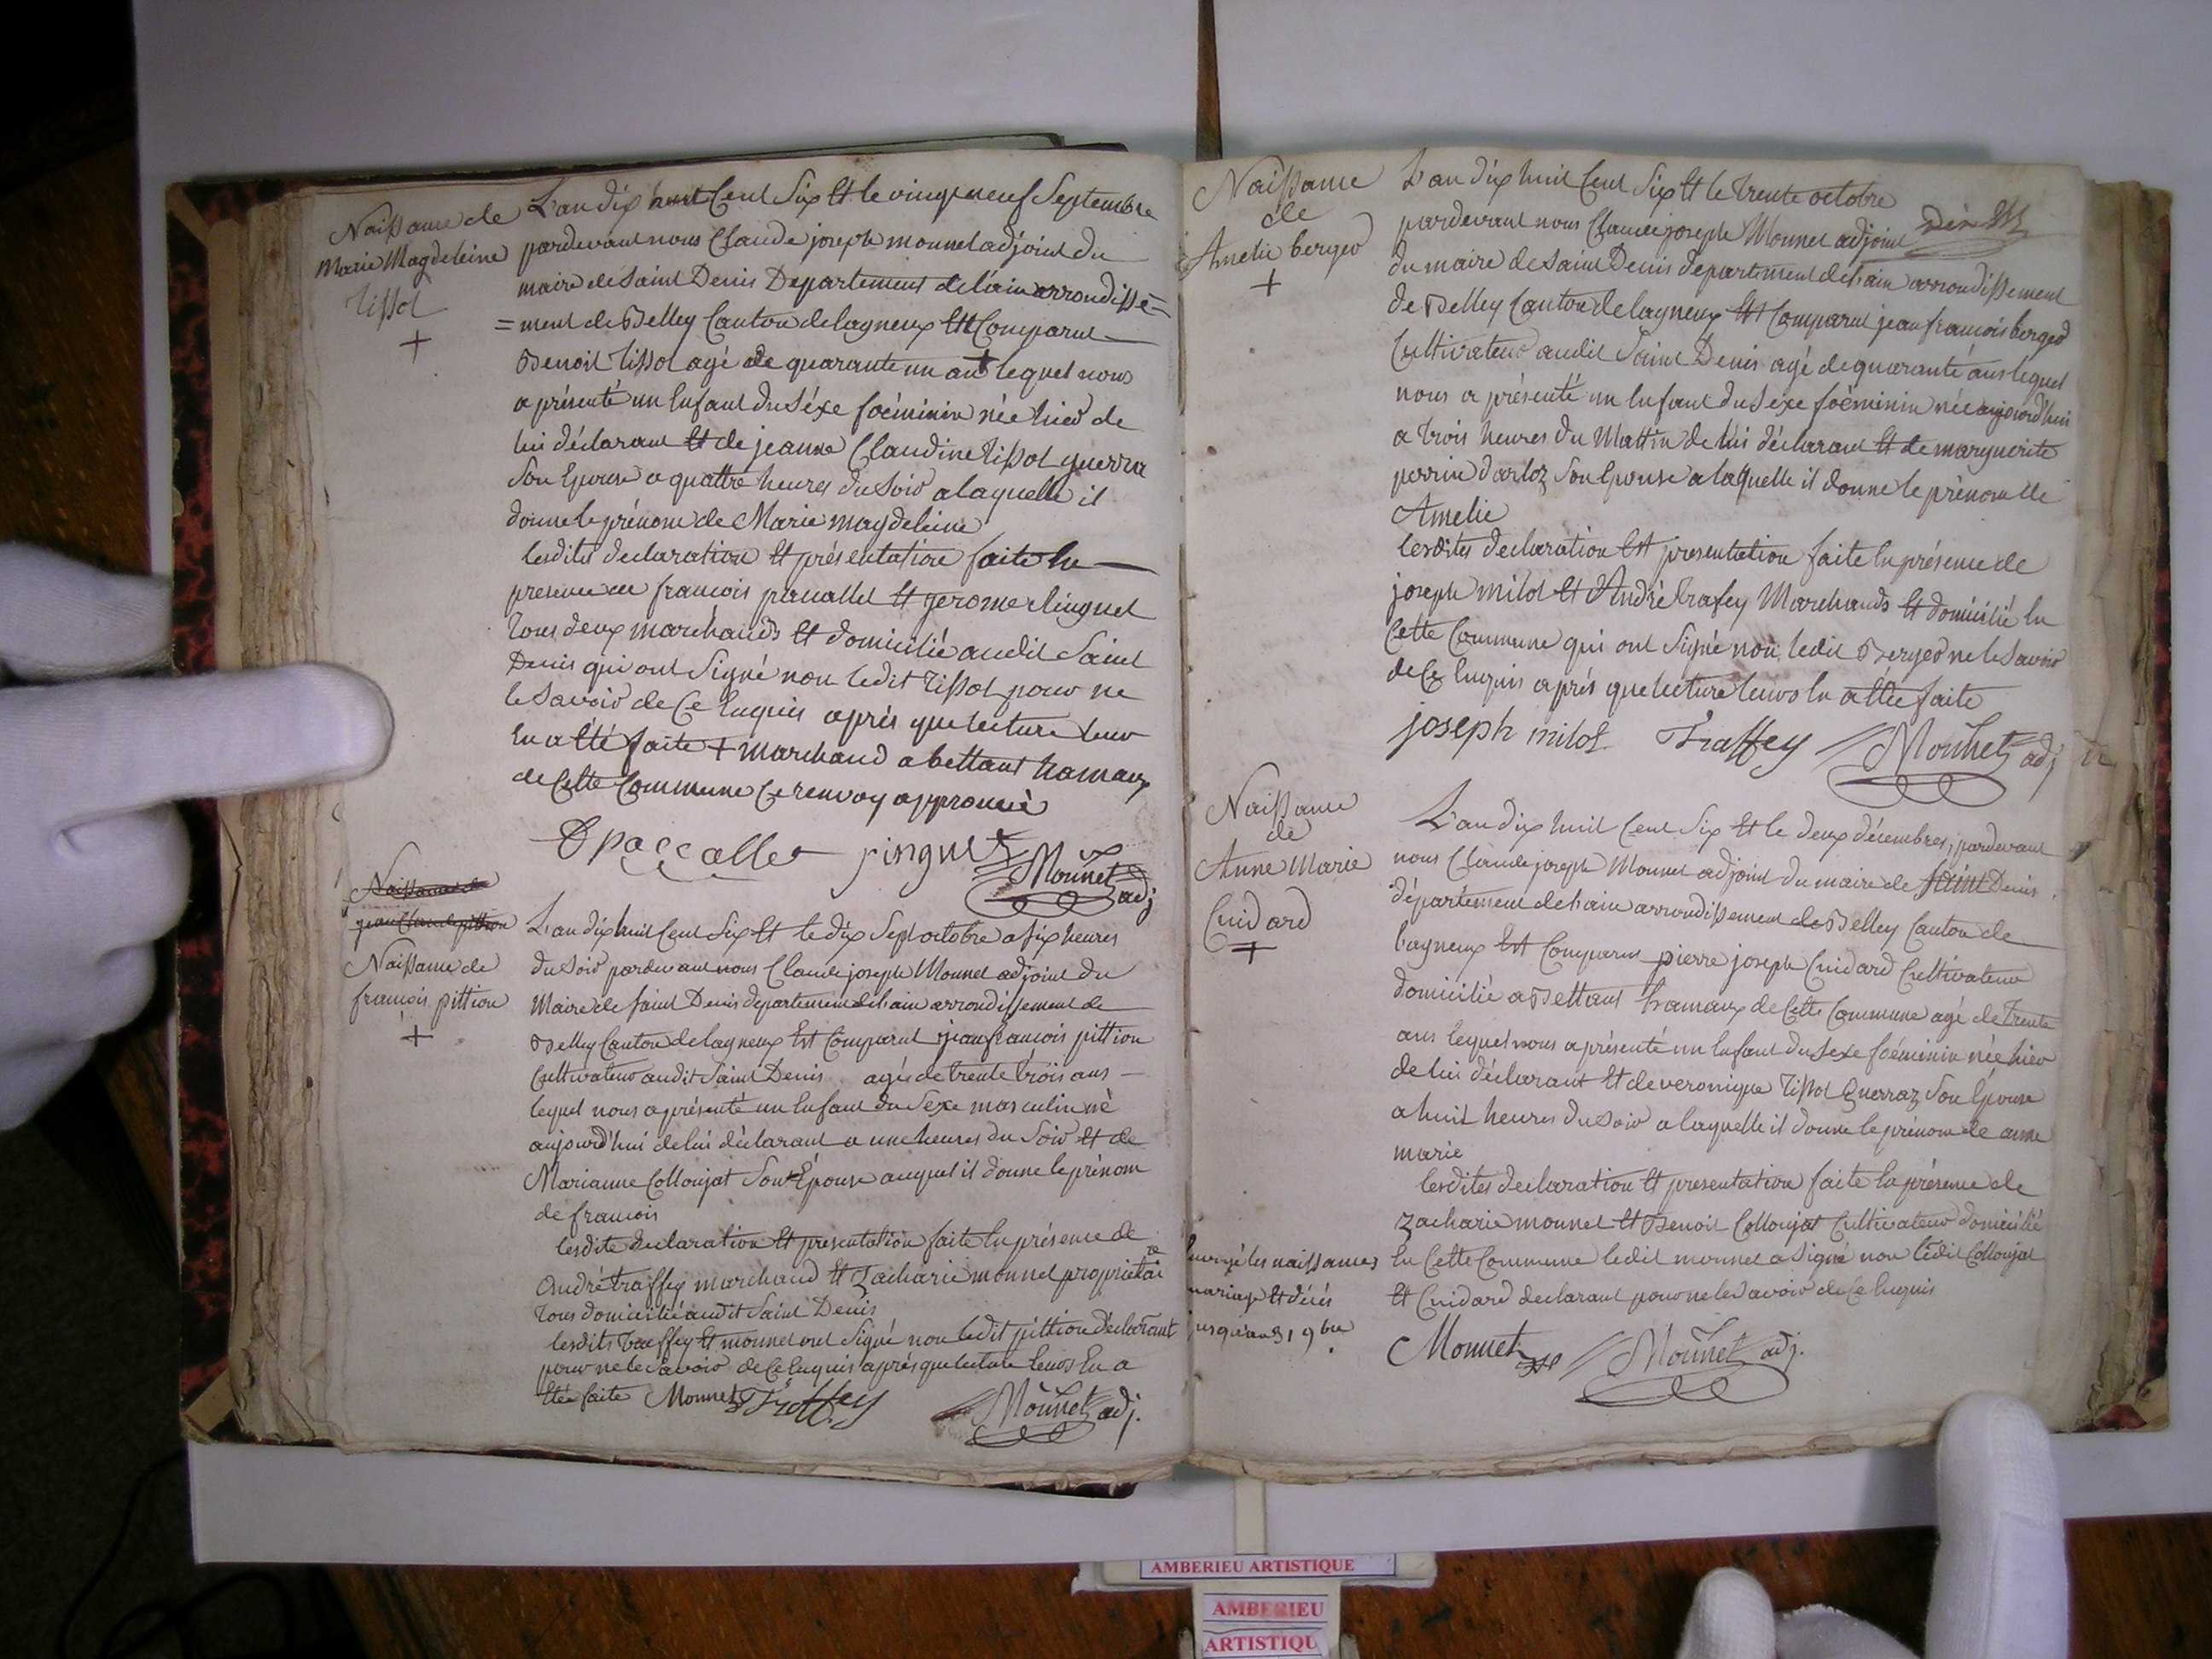 Naissance de
Marie Magdeleine
Tissot
+
L'an dix huit Cent Six Et le vingt neuf Septembre
pardevant nous Claude joseph monnet adjoint du
maire de Saint Denis Departement de lain arrondisse=
=ment de Belley Canton de lagneux Est Comparut
Benoit Tissot agé de quarante un an + lequel nous
a présenté un Enfant du Séxe foéminin née hier de
lui déclarant Et de jeanne Claudine Tissot guerra
Son Epouse a quattre heures du Soir a laquelle il
donne le prénom de Marie magdeleine
lesdites declaration Et présentation faite En
presence de francois Et gerome
tous deux marchands Et domicilié audit Saint
Denis qui ont Signé non ledit Tissot pour ne
le Savoir de Ce Enquis aprés que lecture leur
En a Eté faite + marchand a bettant hamaux
de Cette Commune Ce renvoy approuvé
Monnet adj
Naissance de
jean Claude pittion
Naissance de
francois pittion
+
L'an dix huit Cent Six Et le dix Sept octobre a six heures
du Soir pardevant nous Claude joseph Monnet adjoint du
Maire de Saint Denis departement de lain arrondissement de
Belley Canton de lagneux Est Comparut jean francois pittion
Cultivateur audit Saint Denis agée de trente trois ans
lequel nous a présenté un Enfant du Sexe masculin né
aujourd'hui de lui déclarant a une heures du Soir Et de
Marianne Collonjat Son Épouse auquel il donne le prénom
de francois
lesdite declaration Et presentation faite En présence de
André traffey marchand Et Zacharie monnet proprietaire
tous domicilié audit Saint Denis
lesdits traffey Et monnet ont Signé non ledit pittion déclarant
pour ne le Savoir de Ce Enquis aprés que lecture leurs En a
Etée faite Monnet Traffey Monnet adj.
Naissance
de
Amelie berger
+
L'an dix huit Cent Six Et le trente octobre
pardevant nous Claude joseph Monnet adjoint
du maire de Saint Denis departement de lain arrondissement
de Belley Canton de lagneux Est Comparut jean francois berger
Cultivateur audit Saint Denis agé de quarante ans lequel
nous a présenté un Enfant du Sexe foéminin née aujourd'hui
a trois heures du Mattin de lui déclarant Et de marguerite
perrin darloz Son Epouse a laquelle il donne le prénom de
Amelie
lesdites declaration Est presentation faite En présence de
joseph milot Et André trafey Marchands Et domicilié En
Cette Commune qui ont Signé non ledit Berger ne le Savoir
de Ce Enquis aprés que lecture leurs En a Etée faite
joseph milot Traffey Monnet adj
Naissance
de
Anne Marie
Cuidard
+
L'an dix huit Cent Six Et le deux décembres, pardevant
nous Claude joseph Monnet adjoint du maire de Saint Denis
département de lain arrondissement de Belley Canton de
lagneux Est Comparus pierre joseph Cuidard Cultivateur
domicilié a Bettant hamaux de Cette Commune agé de trente
ans lequel nous a présenté un Enfant du Sexe foéminin née hier
de lui déclarant Et de veronique Tissot Guerraz Son Épouse
a huit heures du Soir a laquelle il donne le prénom de anne
marie
lesdites declaration Et presentation faite En présence de
Zacharie monnet Et Benoit Collonjat Cultivateur domicilié
En Cette Commune ledit monnet a Signé non ledit Collonjat
Et Cuidard declarant pour ne le Savoir de Ce Enquis
Envoyé les naissances
mariage Et décés
jusqu'au 31 9bre
Monnet Monnet adj.
AMBERIEU ARTISTIQUE
AMBERIEU
ARTISTIQU